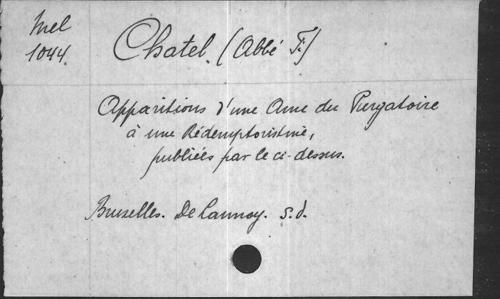 Mel
1044.
Chatel. (Abbé F.)
Apparitions d'une Ame du Purgatoire
à une Rédemptoristine,
publiées par le ci-dessus.
Bruxelles. De Lannoy. s.d.